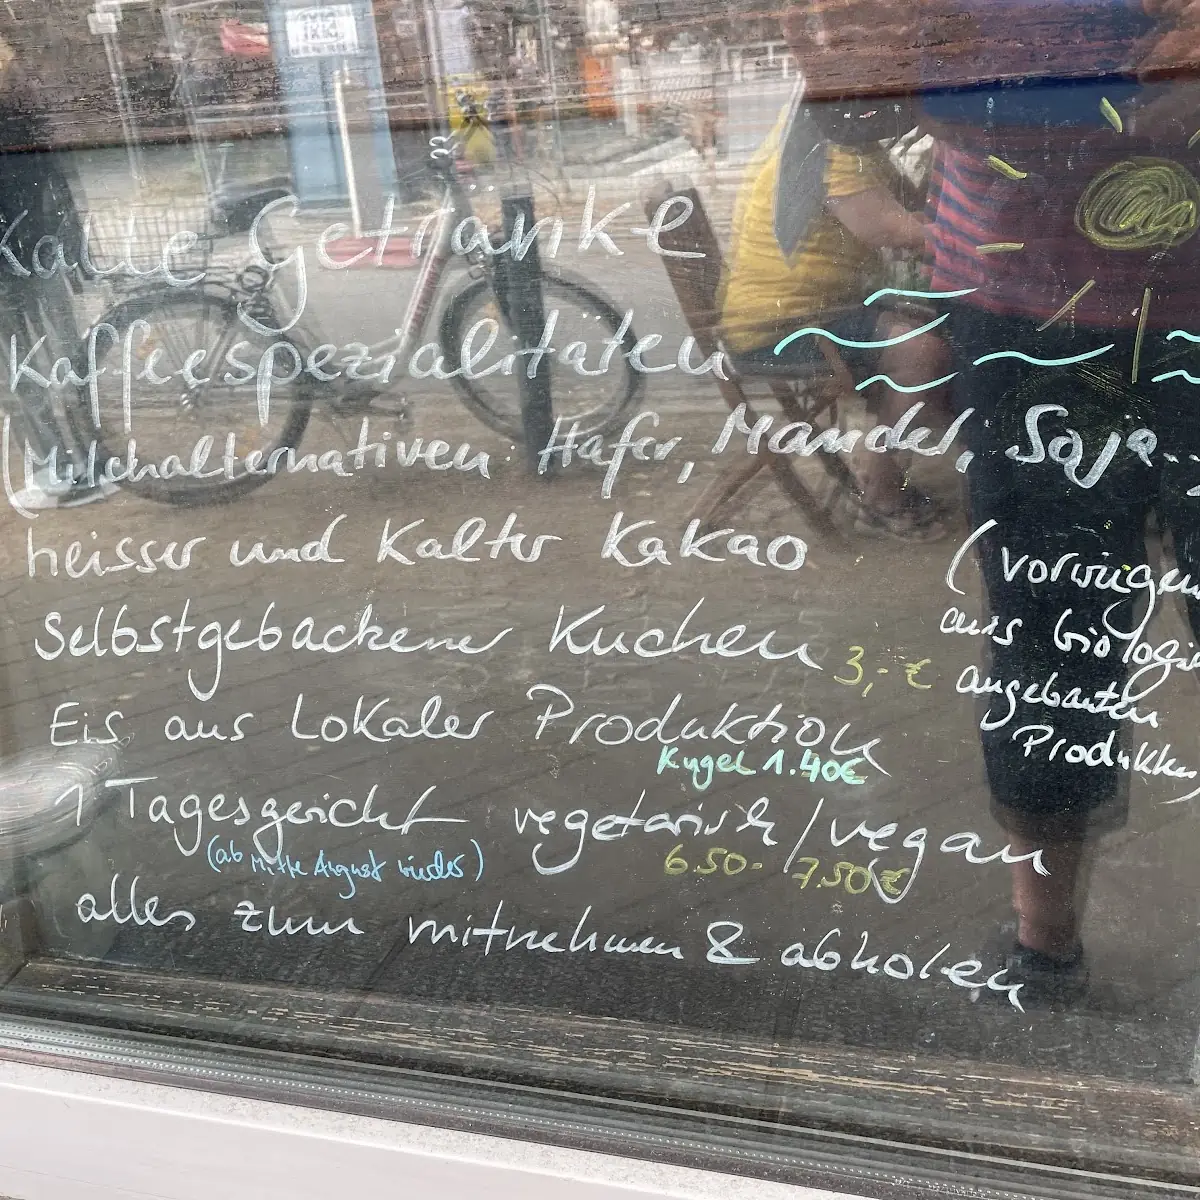 Kalte Getränke
Kaffeespezialitäten
(Milchalternativen: Hafer, Mandel, Soja...
heisser und Kalter Kakao
Selbstgebackener Kuchen 3,-€
(vorwiegen
aus biologis
angebauten
Produkten)
Eis aus lokaler Produktion
Kugel 1.40€
1 Tagesgericht vegetarisch/vegan
(ab Mitte August wieder) 6.50- 7.50€
alles zum mitnehmen & abholen